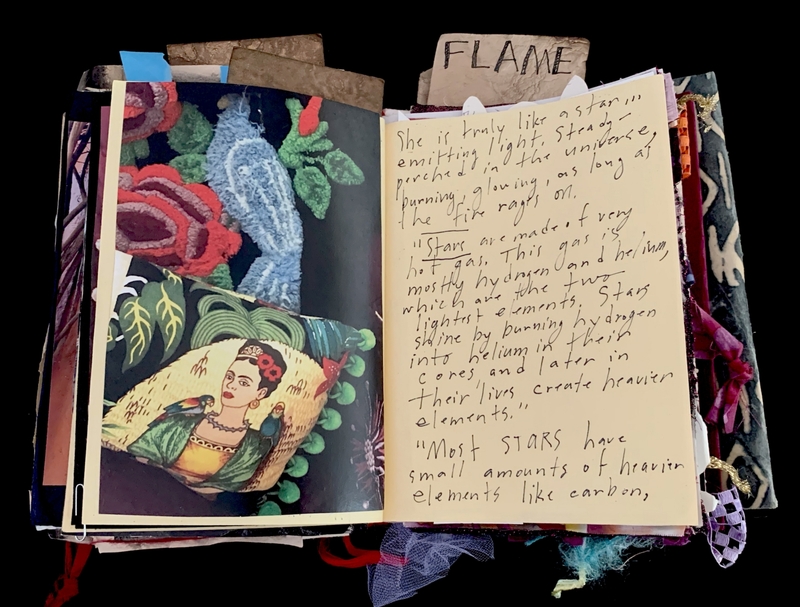 FLAME
She is truly like a star...
emitting light. Steady-
perched in the universe,
burning, glowing, as long as
the fire rages on.
"Stars are made of very
hot gas. This gas is
mostly hydrogen and helium,
which are the two
lightest elements. Stars
shine by burning hydrogen
into helium in their
cores and later in
their lives create heavier
elements."
"Most STARS have
small amounts of heavier
elements like carbon,